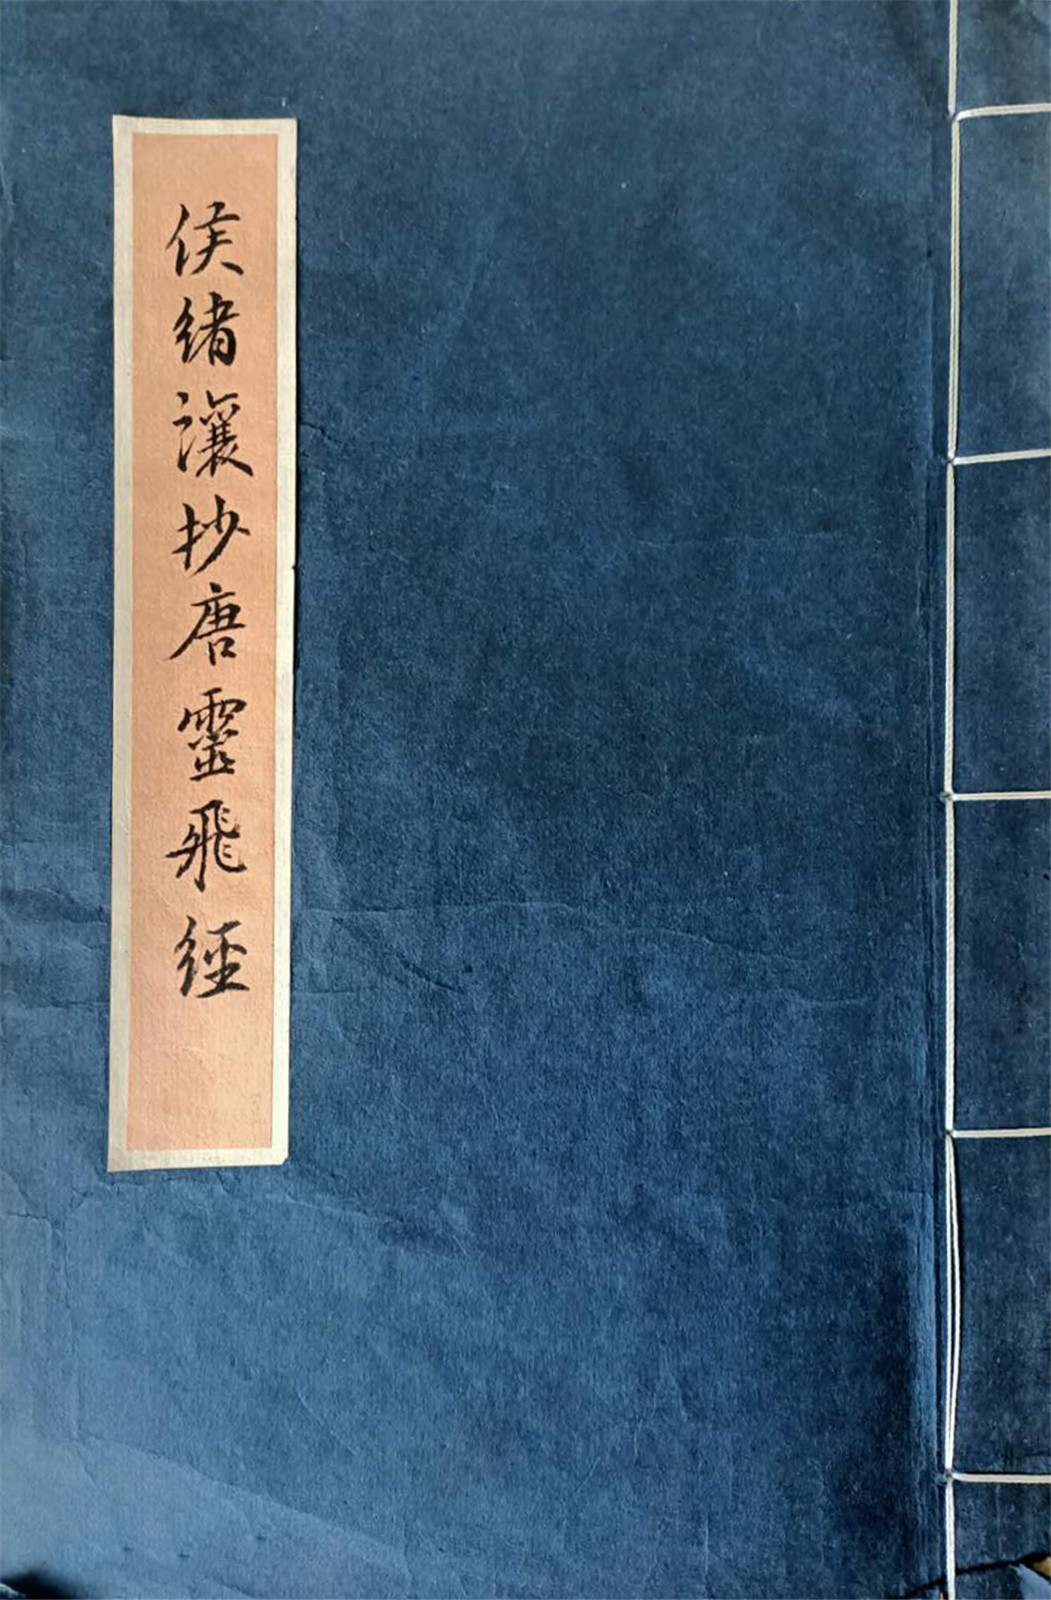 侯緒讓抄唐靈飛經